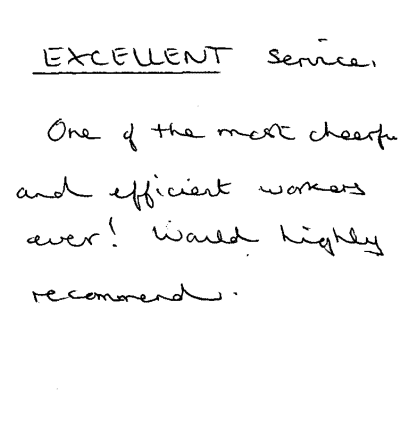 EXCELLENT Service.
One of the most cheerfu
and efficient workers
ever! Would highly
recommend.